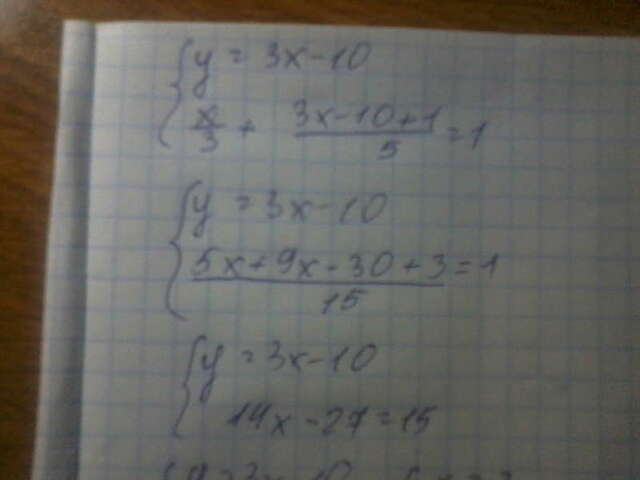 y = 3x - 10
x/3 + (3x - 10 + 1)/5 = 1
y = 3x - 10
(5x + 9x - 30 + 3)/15 = 1
y = 3x - 10
14x - 27 = 15